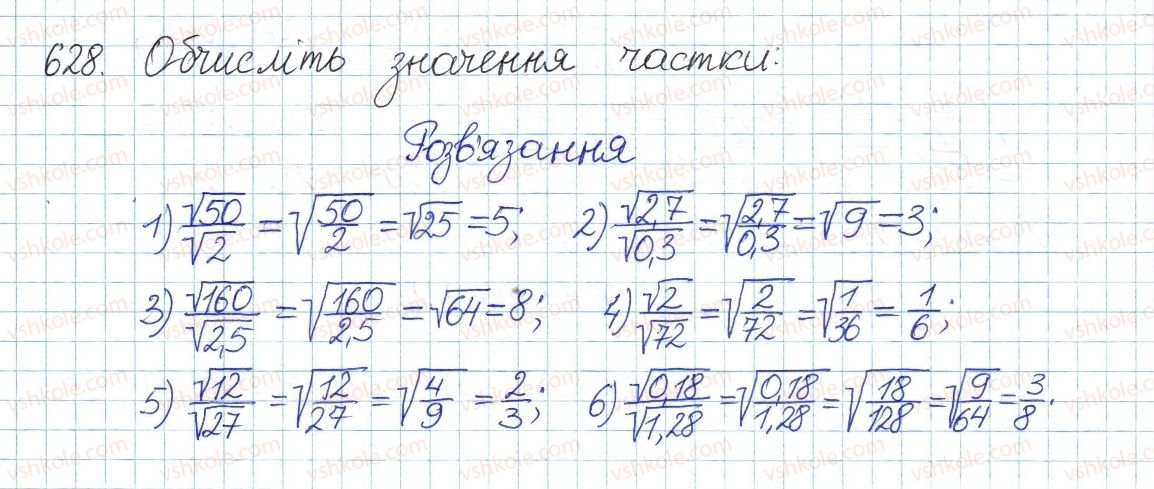 628. Обчисліть значення частки:
Розв'язання
1) √50/√2 = √(50/2) = √25 = 5; 2) √2,7/√0,3 = √(2,7/0,3) = √9 = 3;
3) √160/√2,5 = √(160/2,5) = √64 = 8; 4) √2/√72 = √(2/72) = √(1/36) = 1/6;
5) √12/√27 = √(12/27) = √(4/9) = 2/3; 6) √0,18/√1,28 = √(0,18/1,28) = √(18/128) = √(9/64) = 3/8.